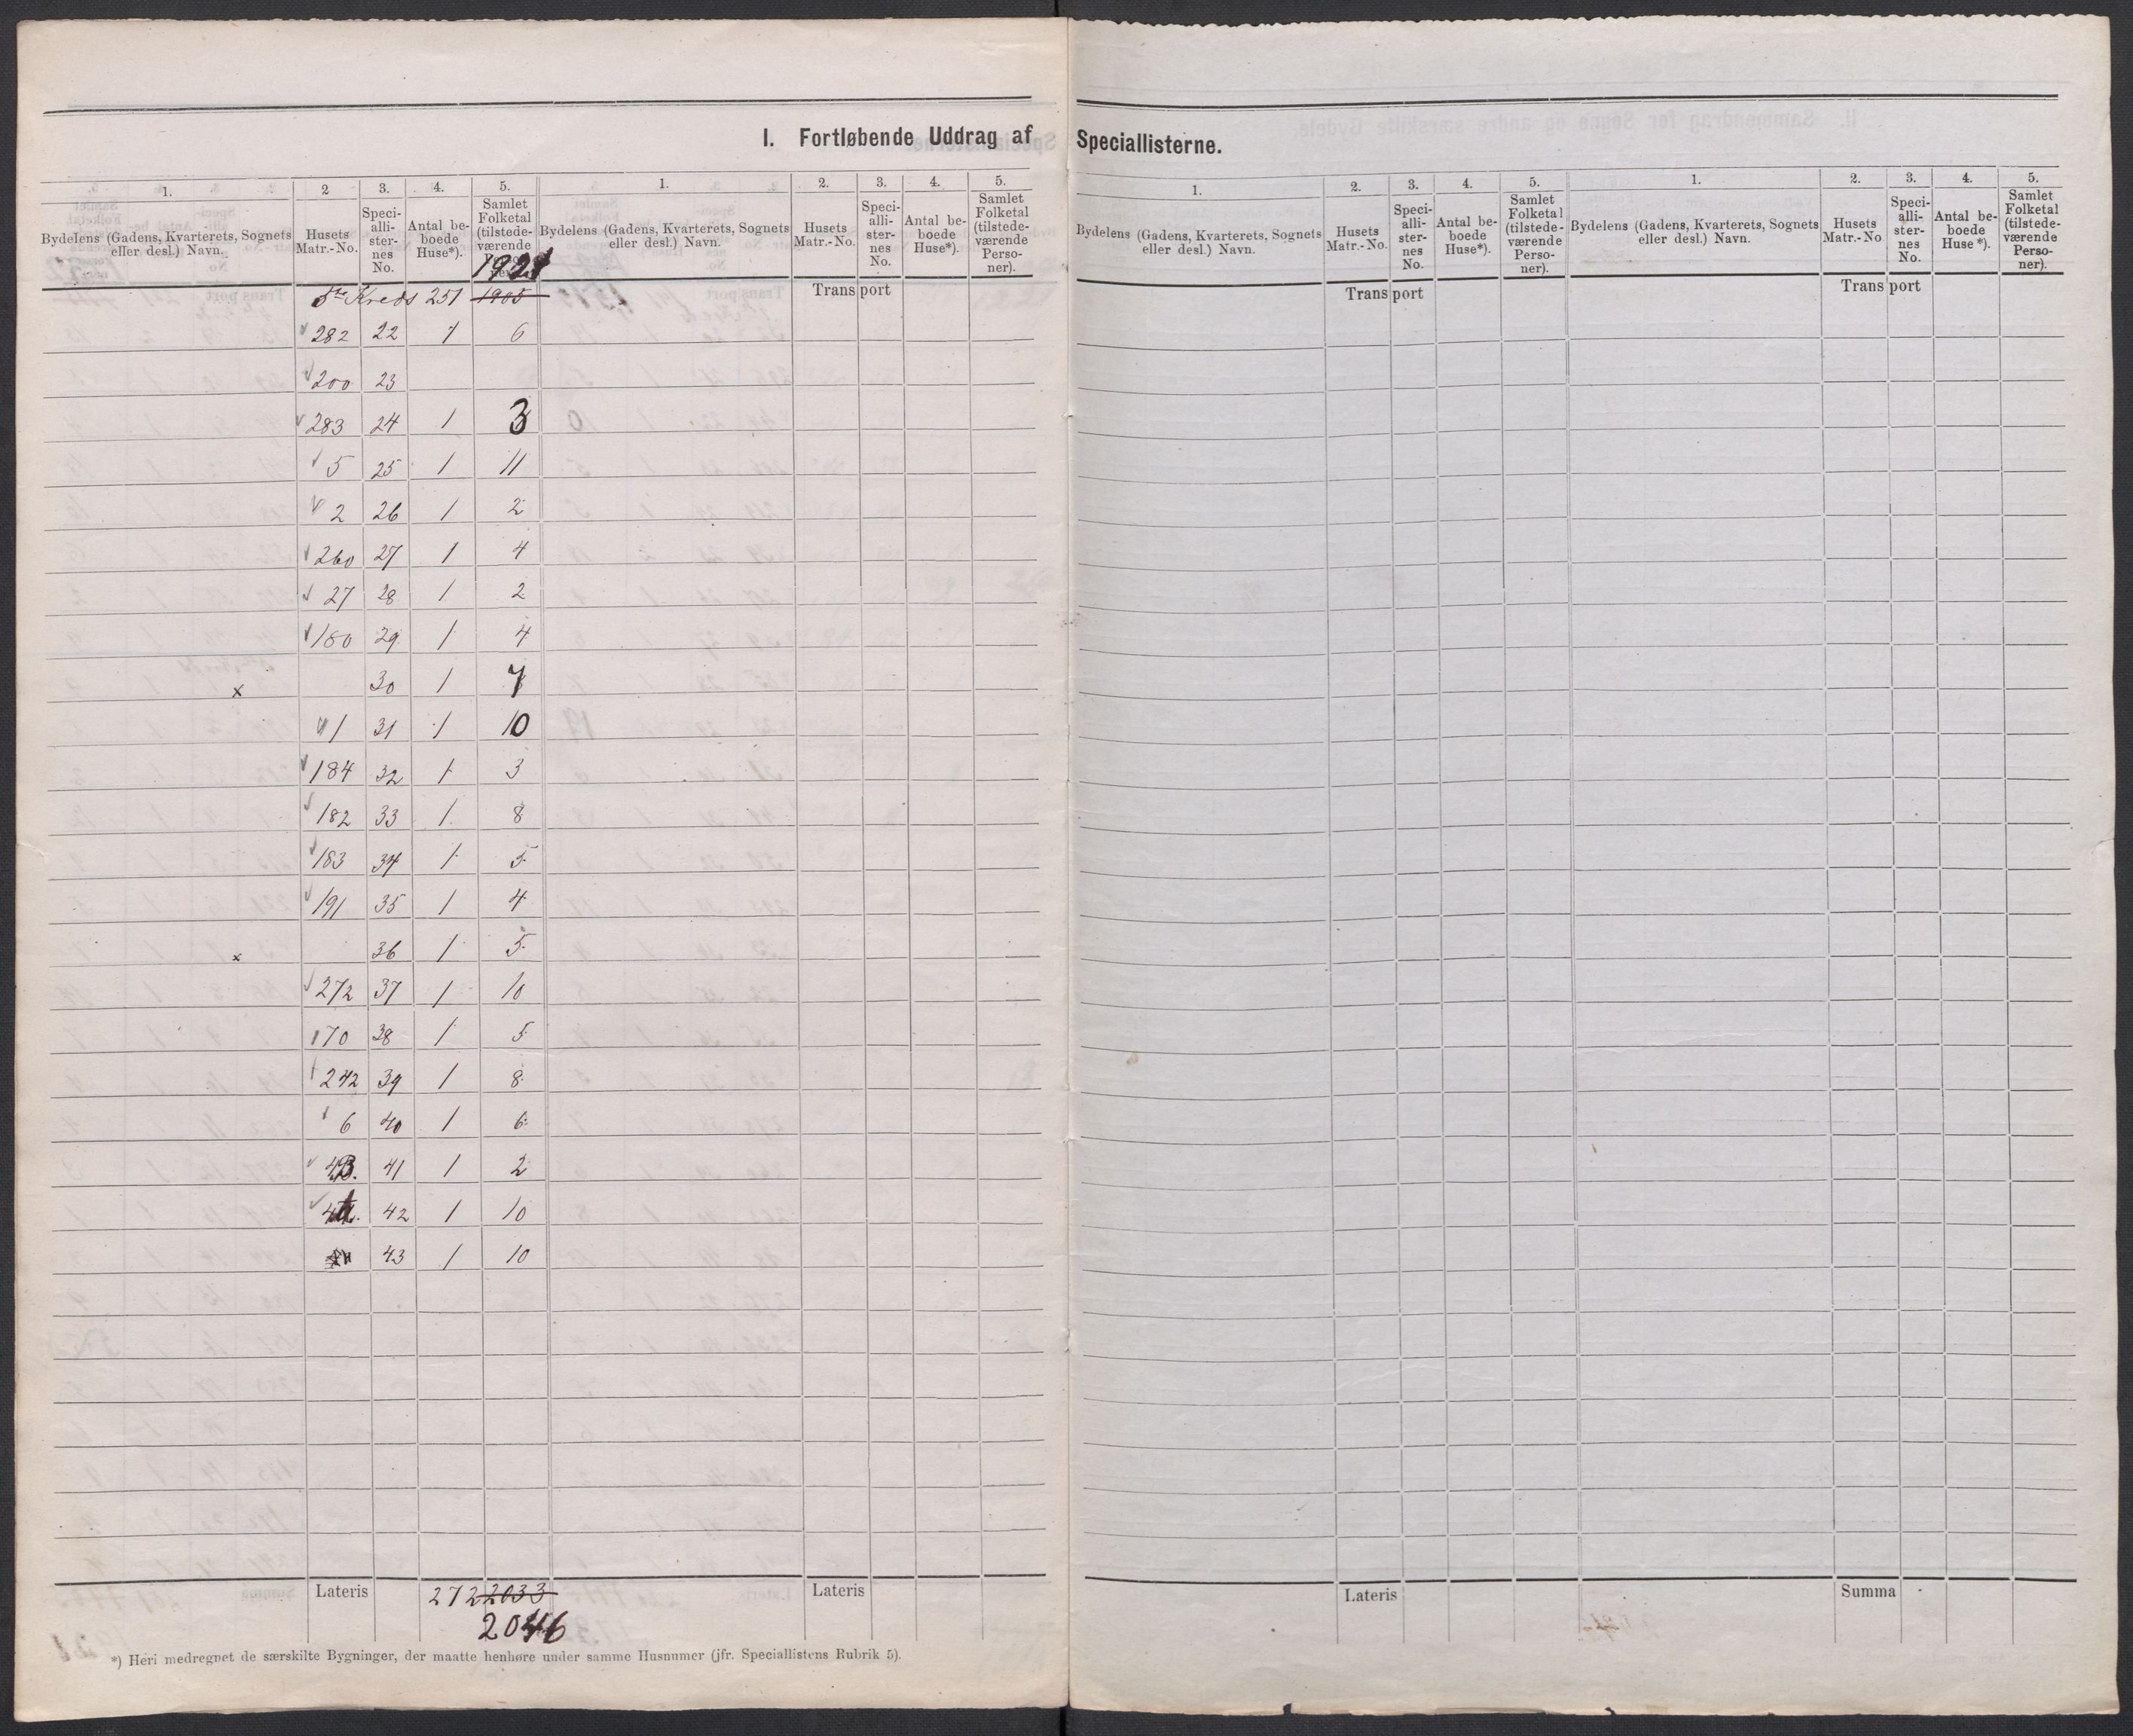 I. Fortløbende Uddrag af Speciallisterne.
1. 2 3. 4. 5. 1. 2. 3. 4. 5. 1. 2. 3. 4. 5. 1. 2. 3. 4. 5.
Bydelens (Gadens, Kvarterets, Sognets eller desl.) Navn. Husets Matr.-No. Speci-alli-ster-nes No. Antal be-boede Huse*). Samlet Folketal (tilstede-værende Perso-ner).
Bydelens (Gadens, Kvarterets, Sognets eller desl.) Navn. Husets Matr.-No. Speci-alli-ster-nes No. Antal be-boede Huse*). Samlet Folketal (tilstede-værende Perso-ner).
Bydelens (Gadens, Kvarterets, Sognets eller desl.) Navn. Husets Matr.-No. Speci-alli-ster-nes No. Antal be-boede Huse*). Samlet Folketal (tilstede-værende Perso-ner).
Bydelens (Gadens, Kvarterets, Sognets eller desl.) Navn. Husets Matr.-No Speci-alli-ster-nes No. Antal be-boede Huse*). Samlet Folketal (tilstede-værende Perso-ner).
5te Kreds 251 1905 Transport Transport Transport
282 22 1 6
200 23
283 24 1 3
5 25 1 11
2 26 1 2
260 27 1 4
27 28 1 2
180 29 1 4
x 30 1 7
1 31 1 10
184 32 1 3
182 33 1 8
183 34 1 5
191 35 1 4
x 36 1 5
272 37 1 10
170 38 1 5
242 39 1 8
6 40 1 6
4B. 41 1 2
42 1 10
43 1 10
Lateris 272 2033 Lateris Lateris Summa
2046
*) Heri medregnet de særskilte Bygninger, der maatte henhøre under samme Husnumer (jfr. Speciallistens Rubrik 5).